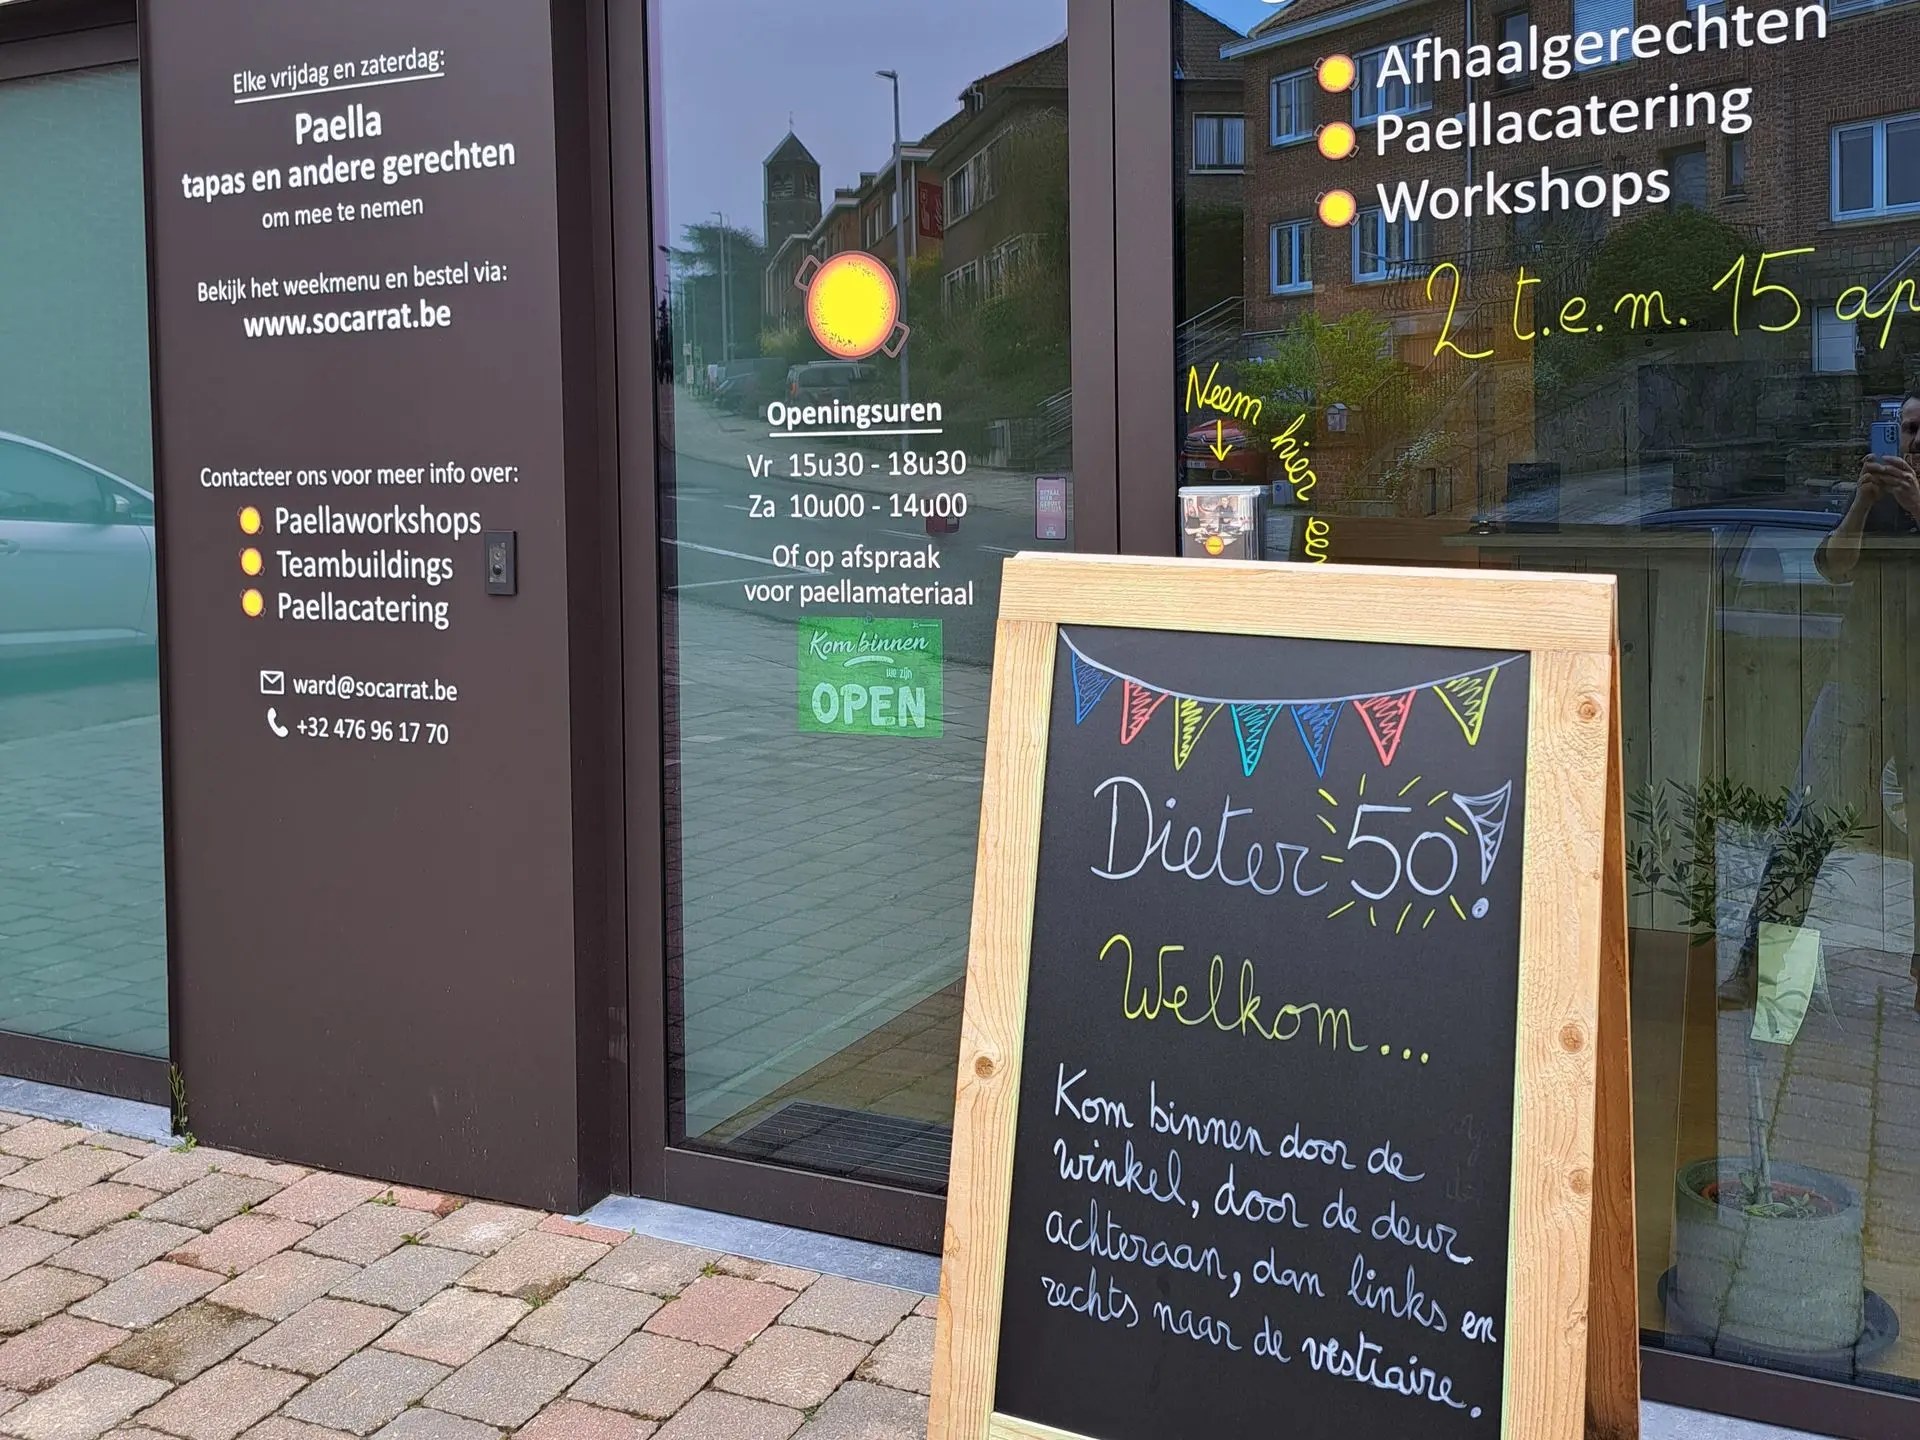 Elke vrijdag en zaterdag:
Paella
tapas en andere gerechten
om mee te nemen
Bekijk het weekmenu en bestel via:
www.socarrat.be
Contacteer ons voor meer info over:
Paellaworkshops
Teambuildings
Paellacatering
ward@socarrat.be
+32 476 96 17 70
Openingsuren
Vr 15u30 - 18u30
Za 10u00 - 14u00
Of op afspraak
voor paellamateriaal
Kom binnen
we zijn
OPEN
Afhaalgerechten
Paellacatering
Workshops
2 t.e.m. 15 ap
Neem hier ee
Dieter 50!
Welkom...
Kom binnen door de
winkel, door de deur
achteraan, dan links en
rechts naar de vestiaire.